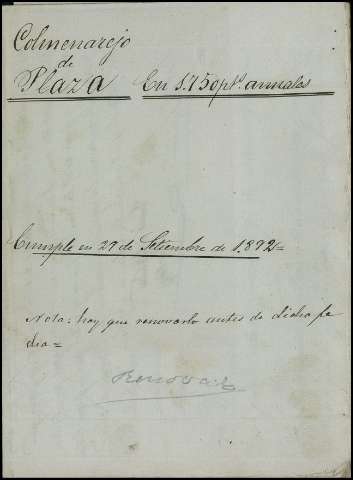 Colmenarejo
de
Plaza En 1.750 pts. anuales
Cumple en 29 de Setiembre de 1.892=
Nota: hay que renovarlo antes de dicha fe
cha=
Renovar